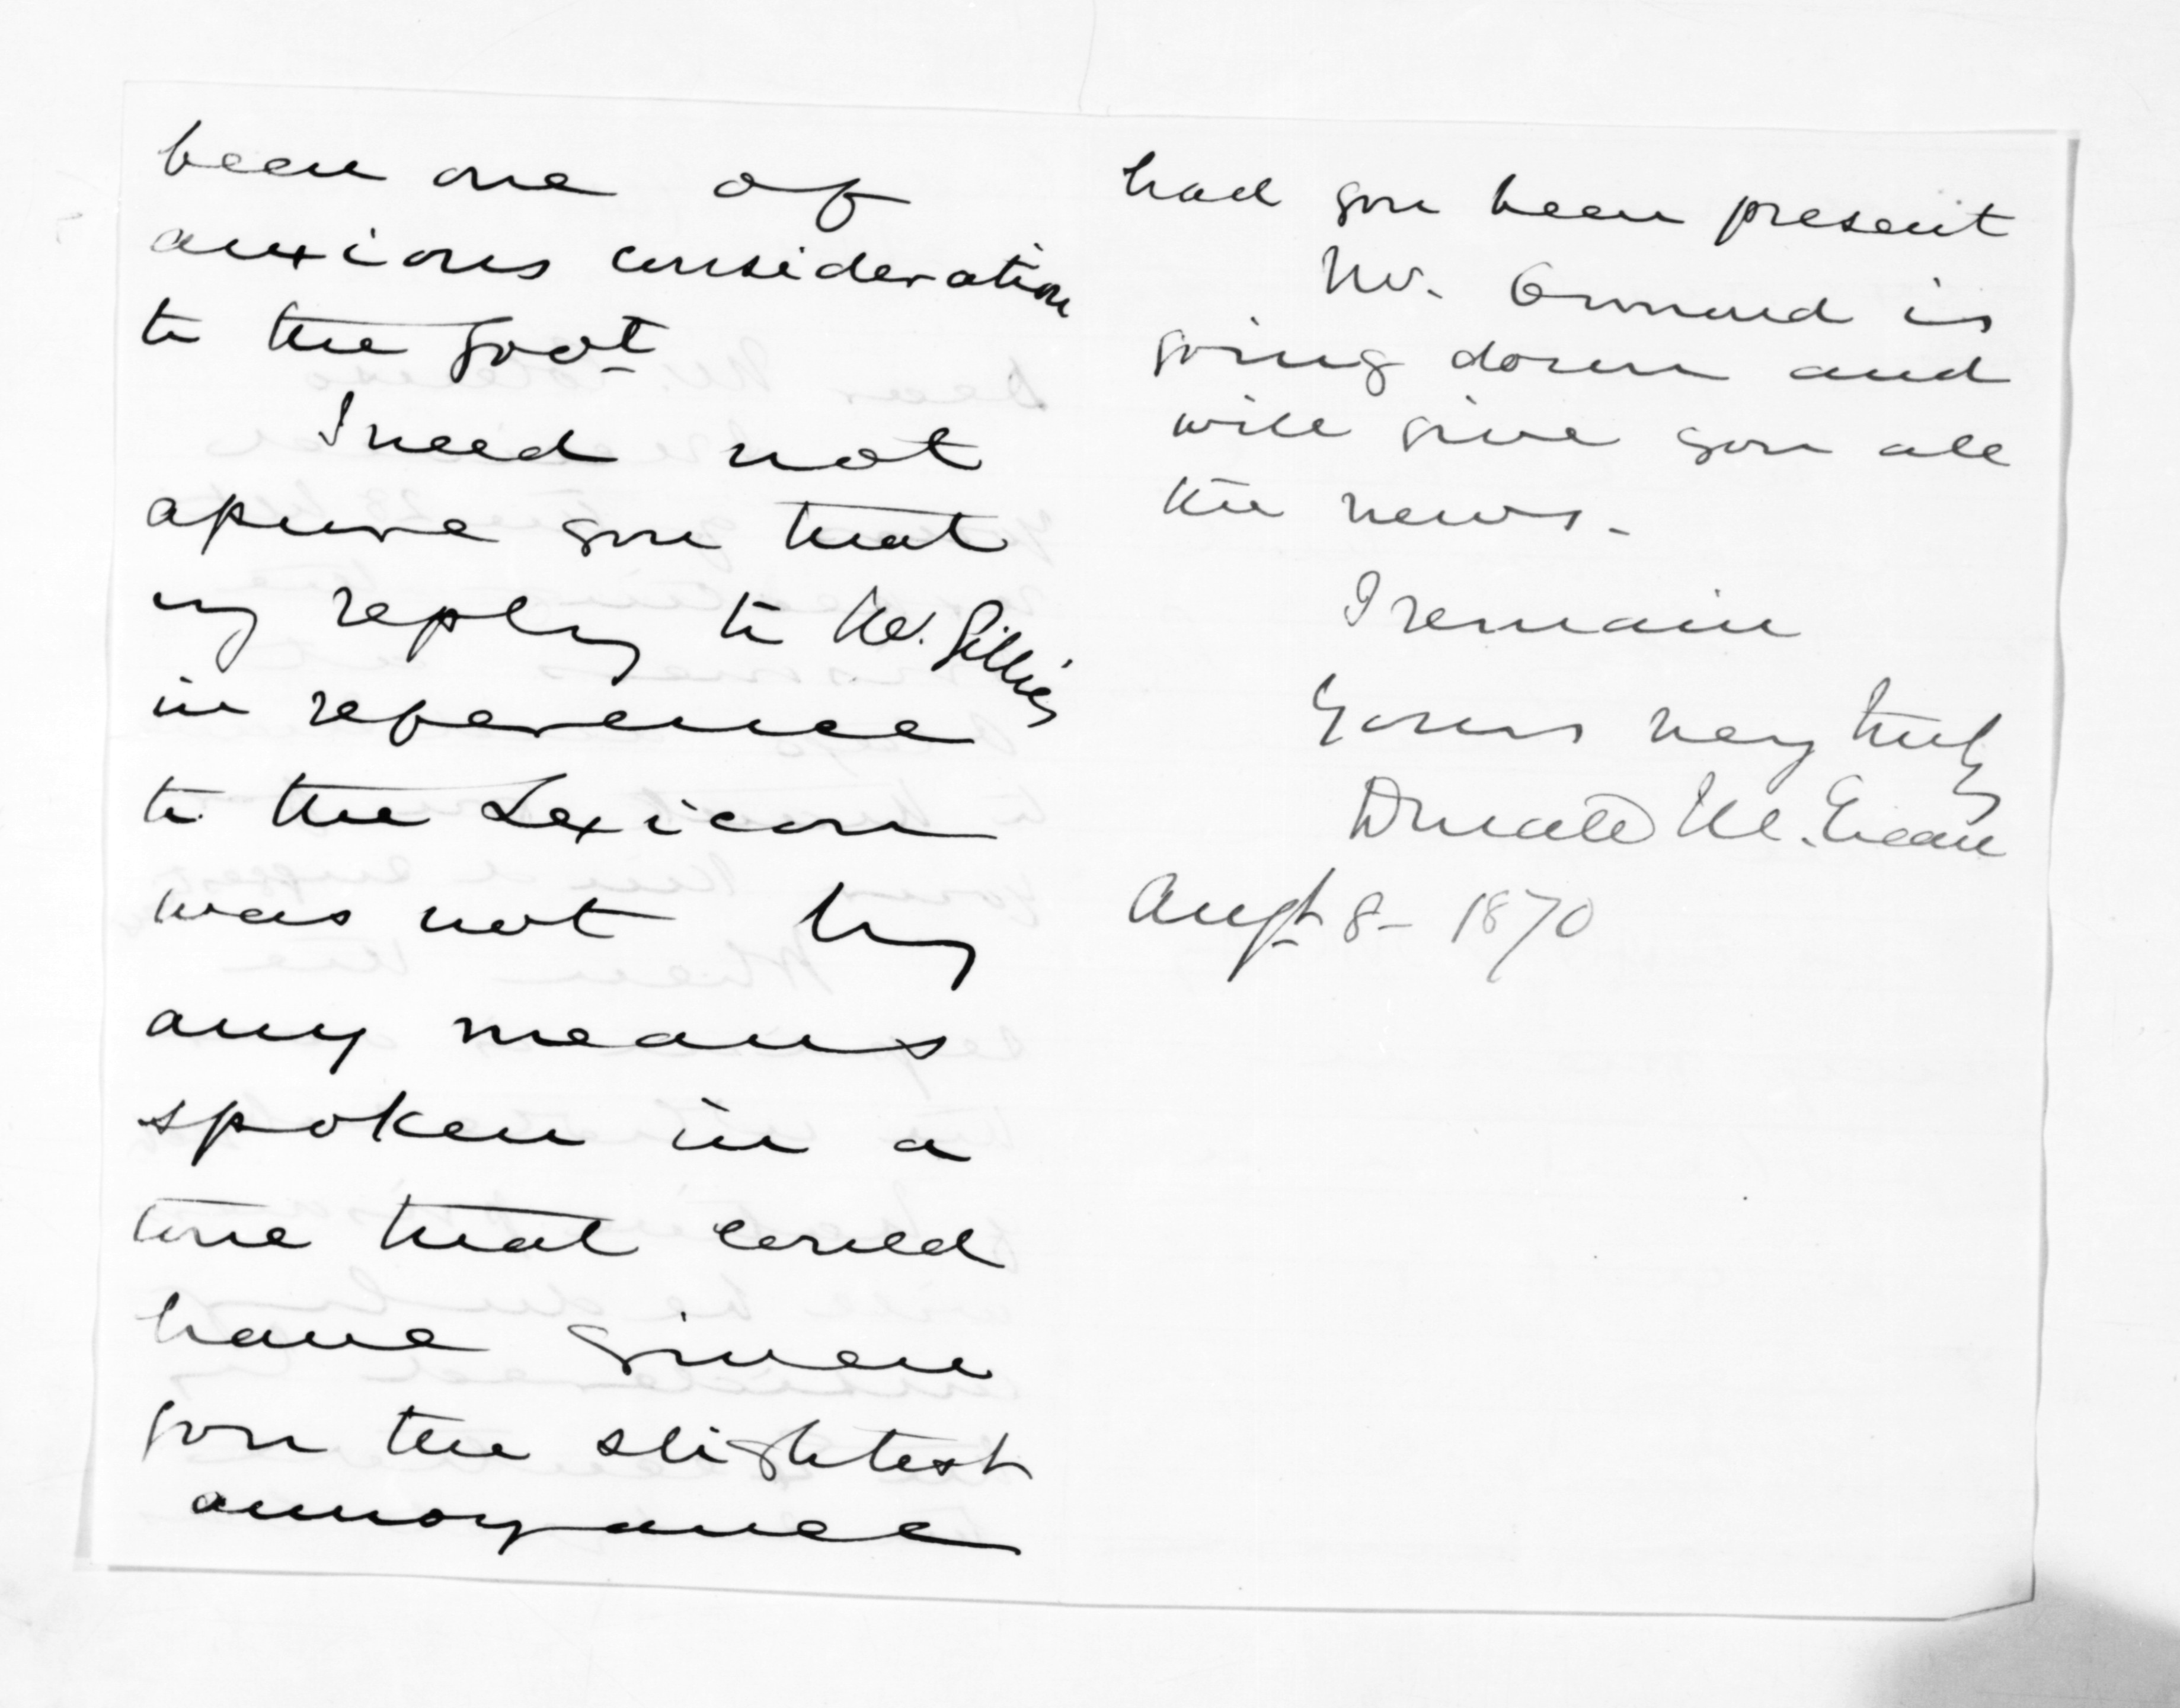 been one of
anxious consideration
to the Govt
I need not
assure you that
my reply to Mr. Gillies
in reference
to the Lexicon
was not by
any means
spoken in a
tone that could
have given
you the slightest
annoyance
had you been present
Mr. Ormond is
going down and
will give you all
the news.
I remain
Yours very truly
Donald McLean
Augt 8 - 1870